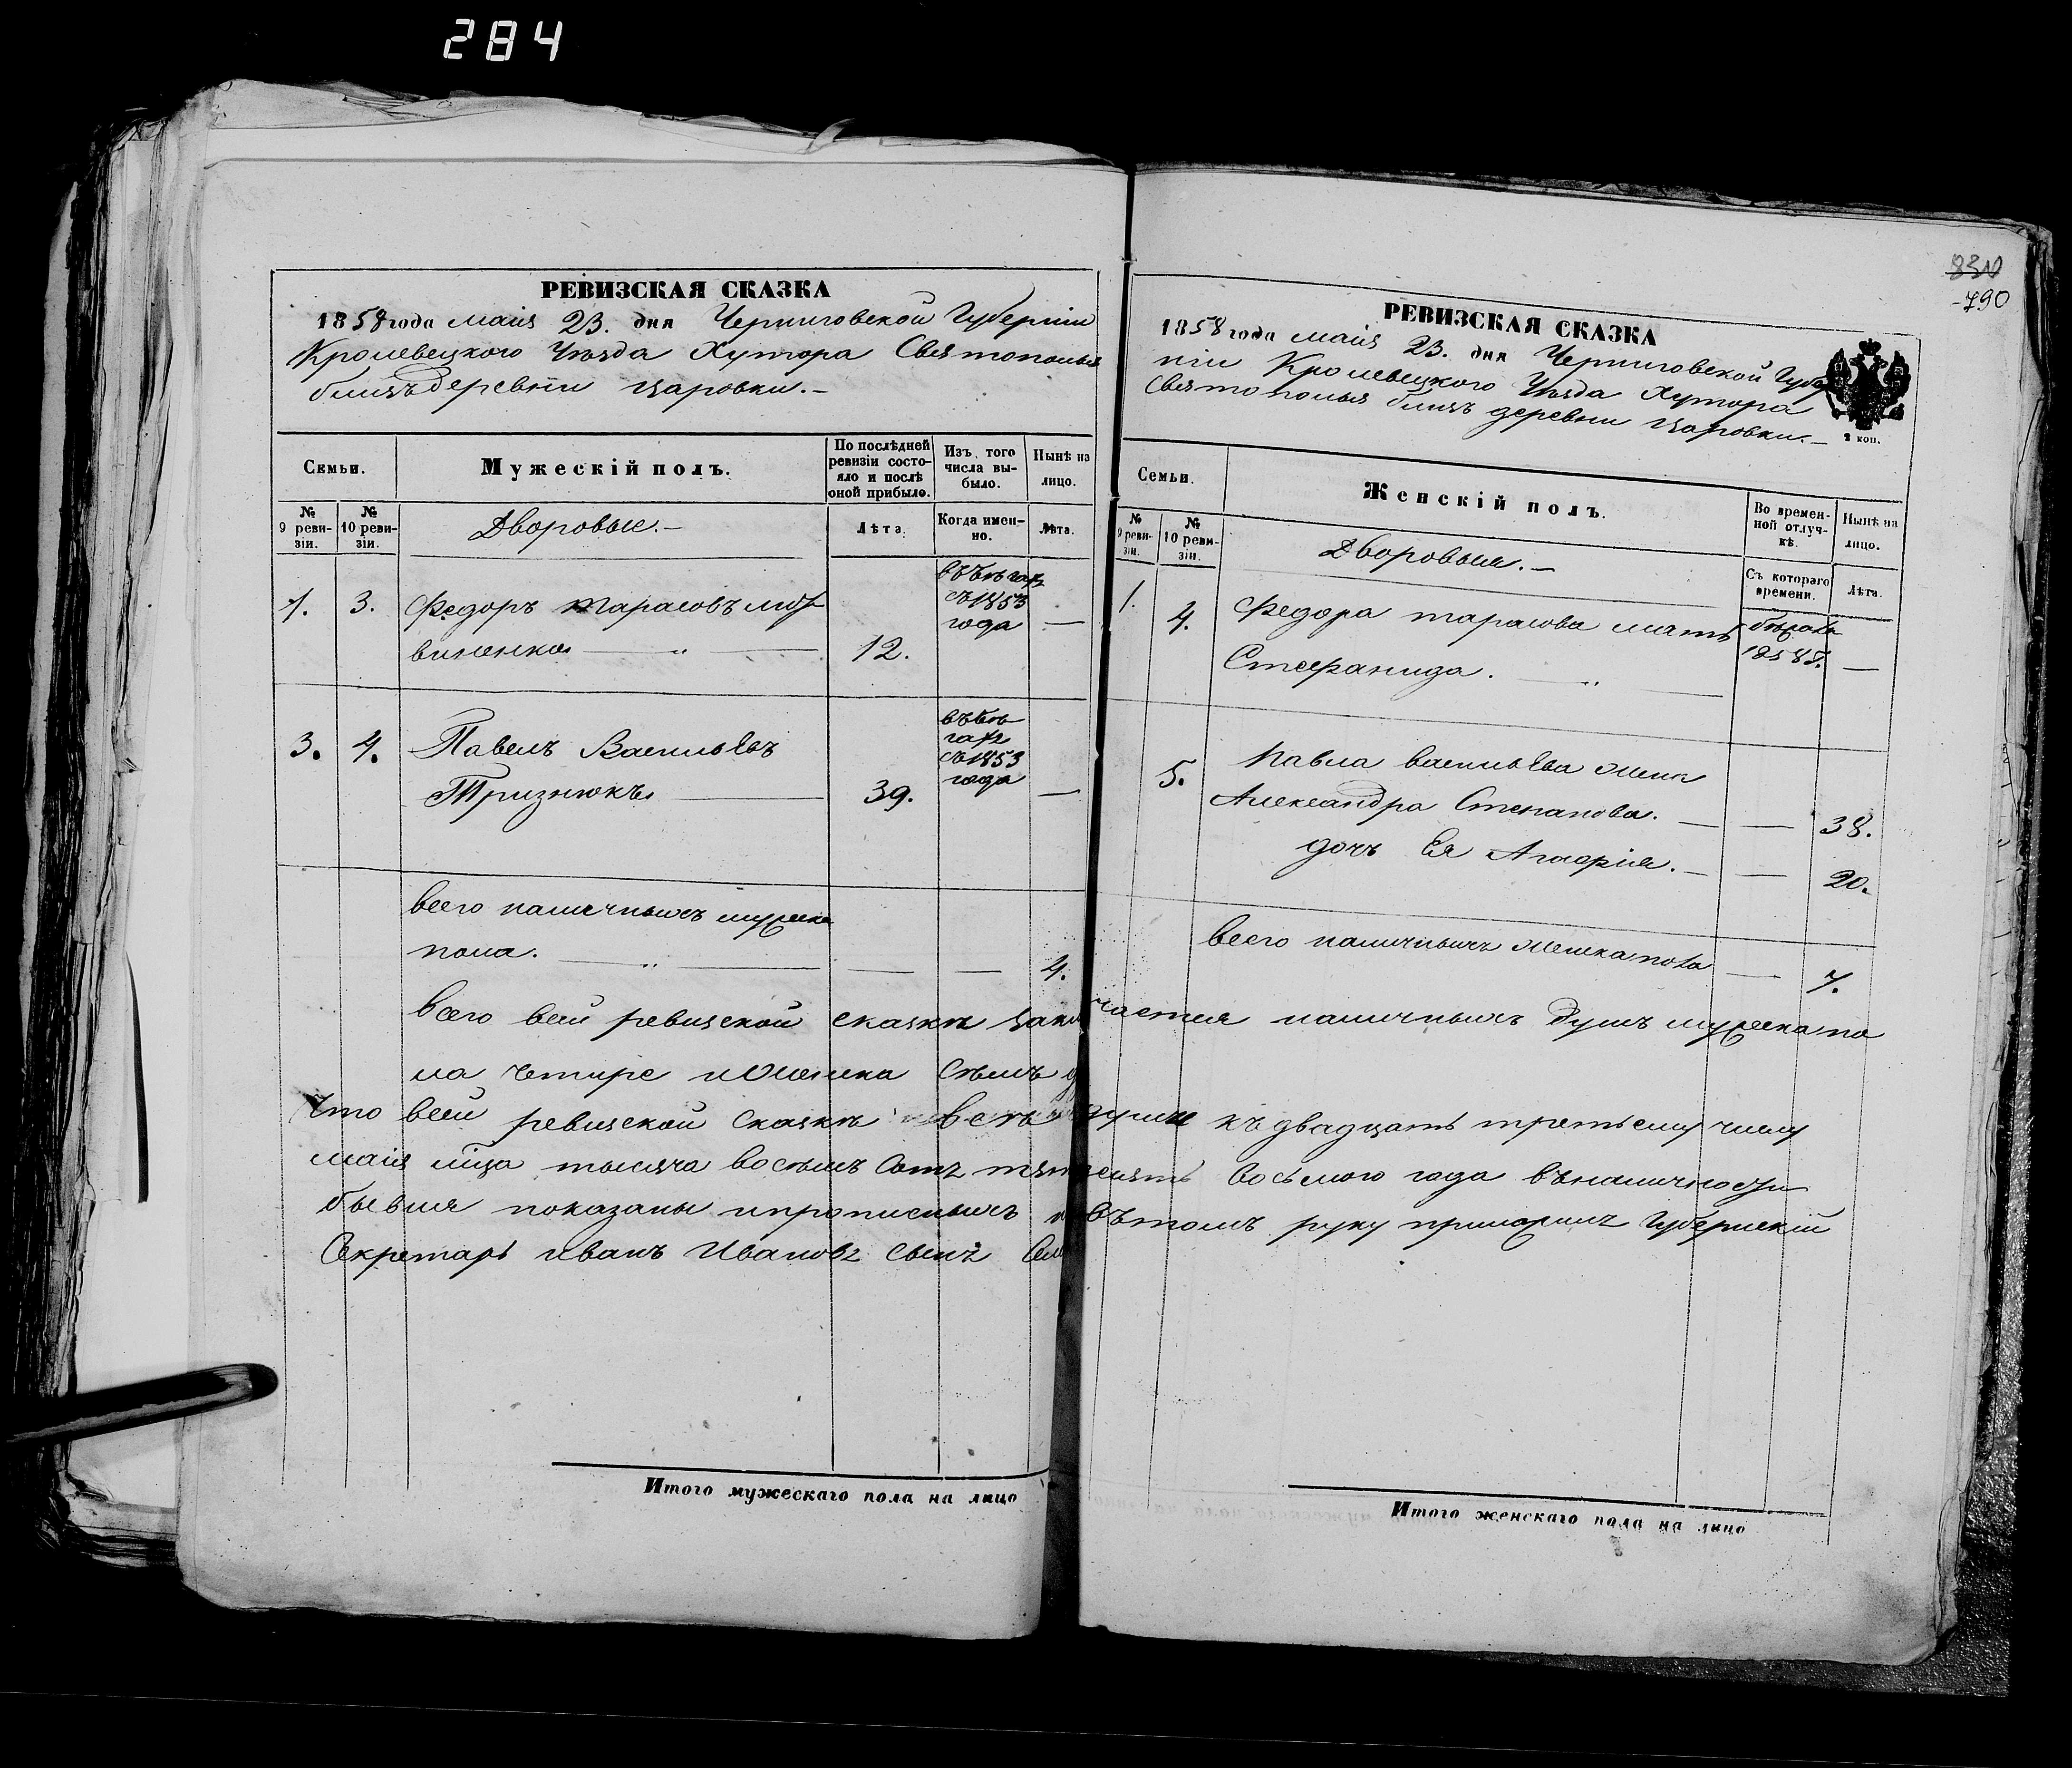 284
РЕВИЗСКАЯ СКАЗКА
1858 года маія 23. дня Черниговской Губерніи
Кролевецкого Уѣзда Хутора Святополья
близъ деревни Царовки.—
Семьи.
Мужескій полъ.
По послѣдней ревизіи состояло и послѣ оной прибыло.
Изъ того числа выбыло.
Нынѣ на лицо.
№ 9 ревизіи.
№ 10 ревизіи.
Дворовые.—
Лѣта.
Когда именно.
Лѣта.
1. 3. Федоръ Тарасовъ
12.
въ бѣгах съ 1853 года —
3. 4. Павелъ Васильевъ
Тризнюкъ 39.
въ бѣгах съ 1853 года —
всего наличныхъ мужеска
пола. — „ — — — 4.
830
790
РЕВИЗСКАЯ СКАЗКА
1858 года маія 23. дня Черниговской Губер
ніи Кролевецкого Уѣзда Хутора
Святополья близъ деревни Царовки.—
2 коп.
Семьи.
Женскій полъ.
Во временной отлучкѣ.
Нынѣ на лицо.
№ 9 ревизіи.
№ 10 ревизіи.
Дворовые.—
Съ котораго времени.
Лѣта.
1. 4. Федора Тарасова мать
Стефанида. — „ —
—
5. Павла Васильева жена
Александра Степанова. — — 38.
дочь Ея Агафія. — — 20.
всего наличныхъ женска пола — 7.
Всего всей ревизской сказкѣ наличныхъ душъ мужеска по
ла четире и женска сѣмь
Что всей ревизской сказкѣ всѣ души къ двадцать третьему числу
маія мѣца тысяча восѣмъ сотъ восьмого года въ наличности
бывшія показаны и прописныхъ въ томъ руку приложилъ Губернскій
Секретарь Иванъ Ивановъ сынъ
Итого мужескаго пола на лицо
Итого женскаго пола на лицо